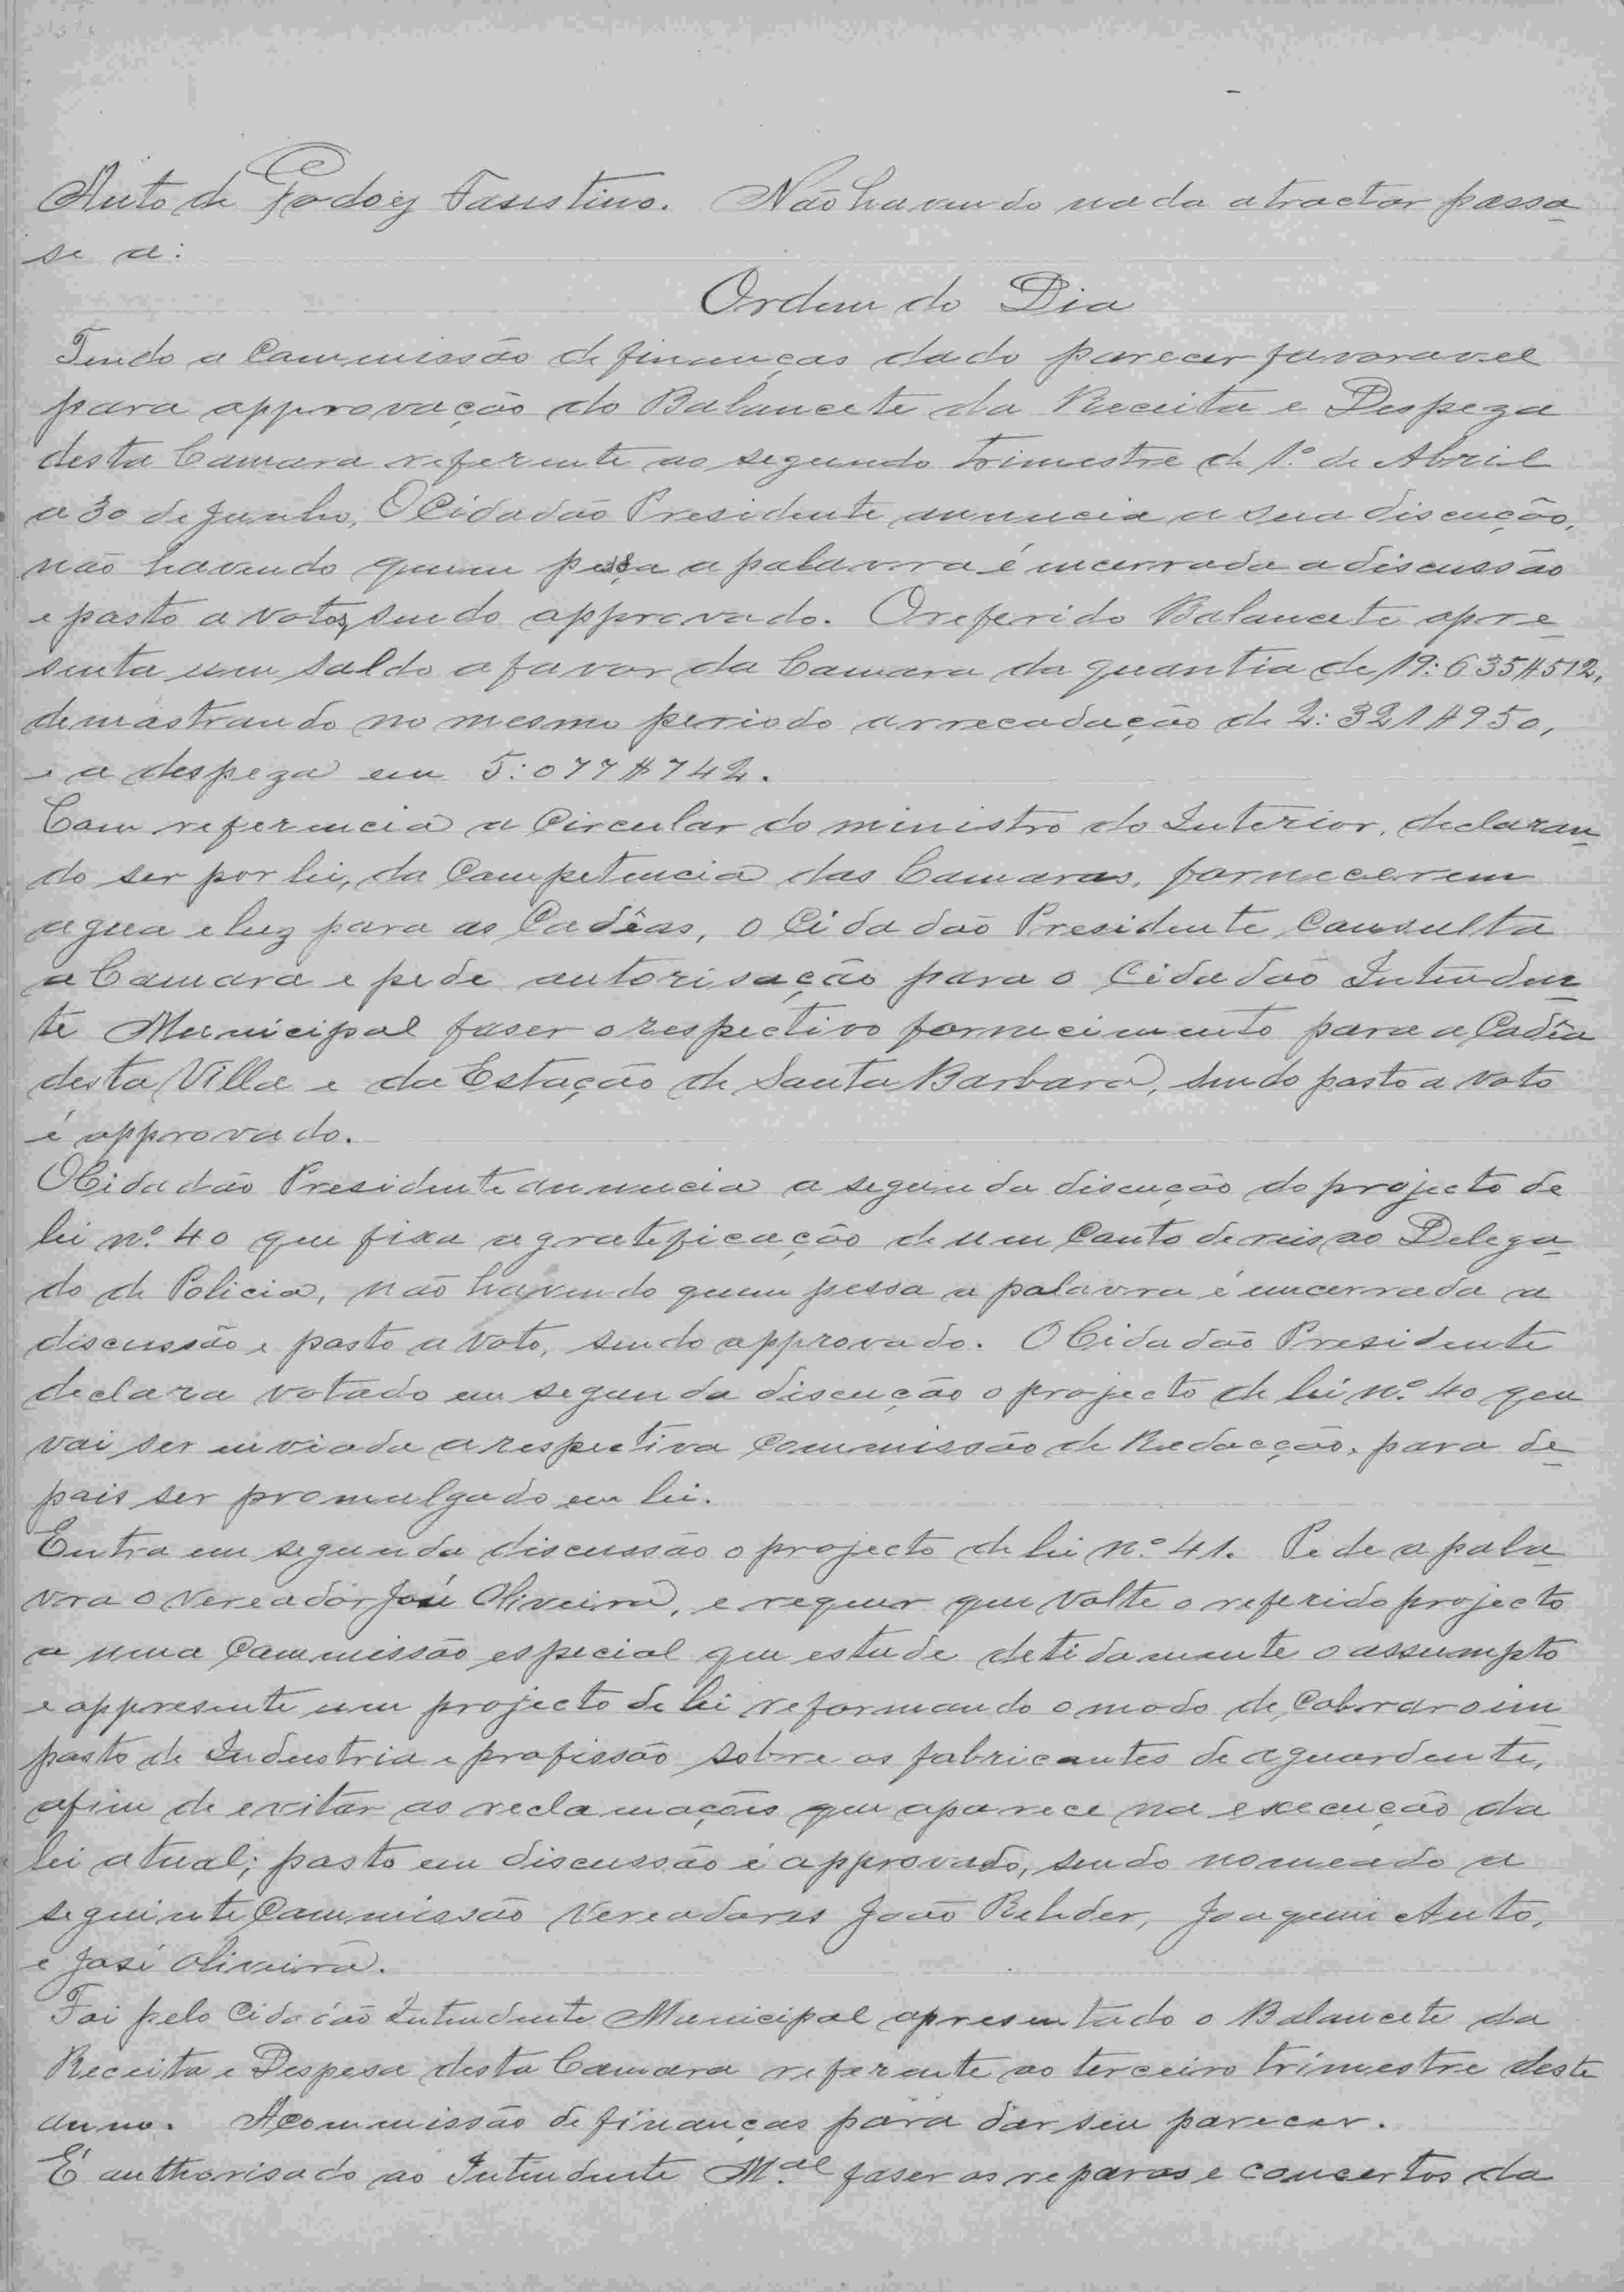 Auto de Godoy Faustino. Não havendo nada a tractar passa-
se a:
Ordem do Dia
Tendo a Commissão de finanças dado parecer favoravel
para approvação do Balancete da Receita e Despeza
desta Camara referente ao segundo trimestre de 1.º de Abril
a 30 de Junho, O Cidadão Presidente annuncia a sua discução,
não havendo quem pessa a palavra é encerrada a discussão
e posto a votos, sendo approvado. O referido Balancete apre-
senta um saldo a favor da Camara da quantia de 19:635$512,
demostrando no mesmo periodo arrecadação de 2:321$950,
e a despeza em 5:077$742.
Com referencia a Circular do ministro do Interior, declaran-
do ser por lei, da Competencia das Camaras, fornecerem
agua e luz para as Cadêas, o Cidadão Presidente Consulta
a Camara e pede autorisação para o Cidadão Intenden-
te Municipal faser o respectivo fornecimento para a Cadêa
desta Villa e da Estação de Santa Barbara, sendo posto a voto
é approvado.
O Cidadão Presidente annuncia a segunda discução do projecto de
lei n.º 40 que fixa a gratificação de um Conto de reis ao Delega-
do de Policia, não havendo quem pessa a palavra é encerrada a
discussão e posto a voto, sendo approvado. O Cidadão Presidente
declara votado em segunda discução o projecto de lei n.º 40 que
vai ser enviada a respectiva Commissão de Redacção, para de-
pois ser promulgado em lei.
Entra em segunda discussão o projecto de lei n.º 41. Pede a pala-
vra o Vereador José Oliveira, e requer que Volte o referido projecto
a uma Commissão especial que estude detidamente o assumpto
e appresente um projecto de lei reformando o modo de Cobrar o im-
posto de Industria e profissão sobre os fabricantes de aguardente,
afim de evitar as reclamações que aparece na execução da
lei atual; posto em discussão é approvado, sendo nomeado a
seguinte Commissão Vereadores João Rehder, Joaquim Auto,
e José Oliveira.
Foi pelo Cidadão Intendente Municipal apresentado o Balancete da
Receita e Despesa desta Camara referente ao terceiro trimestre deste
anno. A Commissão de finanças para dar seu parecer.
É authorisado ao Intendente M.al faser os reparos e concertos da